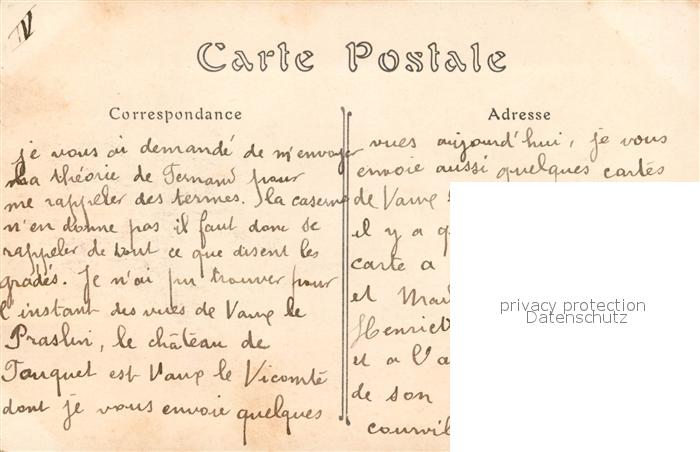 IV
Carte Postale
Correspondance
Adresse
je vous ai demandé de m'envoyer
la théorie de Fernand pour
me rappeler des termes. la caserne
n'en donne pas il faut donc se
rappeler de tout ce que disent les
gradés. Je n'ai pu trouver pour
l'instant des vues de Vaux le
Praslin, le château de
Fouquet est Vaux le Vicomté
dont je vous envoie quelques
vues aujourd'hui, je vous
envoie aussi quelques cartes
de Vaux
il y a q
carte a
et Mad
Henriet
et a l'a
de son
courvil
privacy protection
Datenschutz